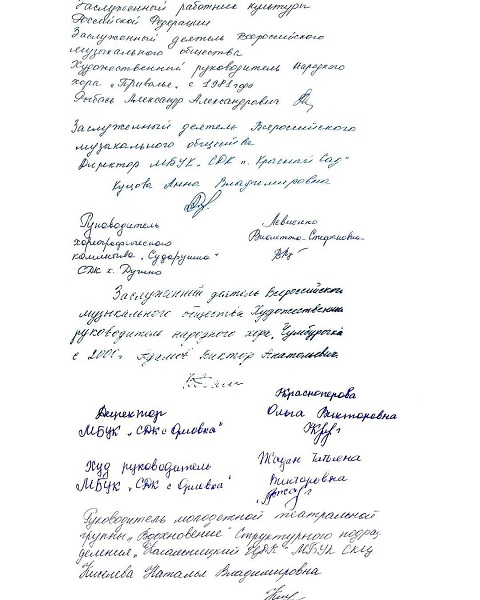 Заслуженный работник культуры
Российской Федерации
Заслуженный деятель Всероссийского
музыкального общества
Художественный руководитель Народного
хора „Приволье" с 1981 года
Александр Александрович
Заслуженный деятель Всероссийского
музыкального общества
Директор МБУК „СДК п. Красный Сад"
Куцова Анна Владимировна
Руководитель
хореографического
коллектива „Сударушка"
СДК х.
Левченко
Виолетта Стефановна
Заслуженный деятель Всероссийского
музыкального общества Художественный
руководитель народного хора „Чумбурочка"
с 2001 г Виктор Анатольевич
Директор
МБУК „СДК с Орловка"
Красноперова
Ольга Викторовна
Худ руководитель
МБУК „СДК с Орловка"
Татьяна
Викторовна
Руководитель молодежной театральной
группы „Вдохновение" Структурного подраз
деления „ ЦДК" МБУК СКЦ
Киселева Наталья Владимировна